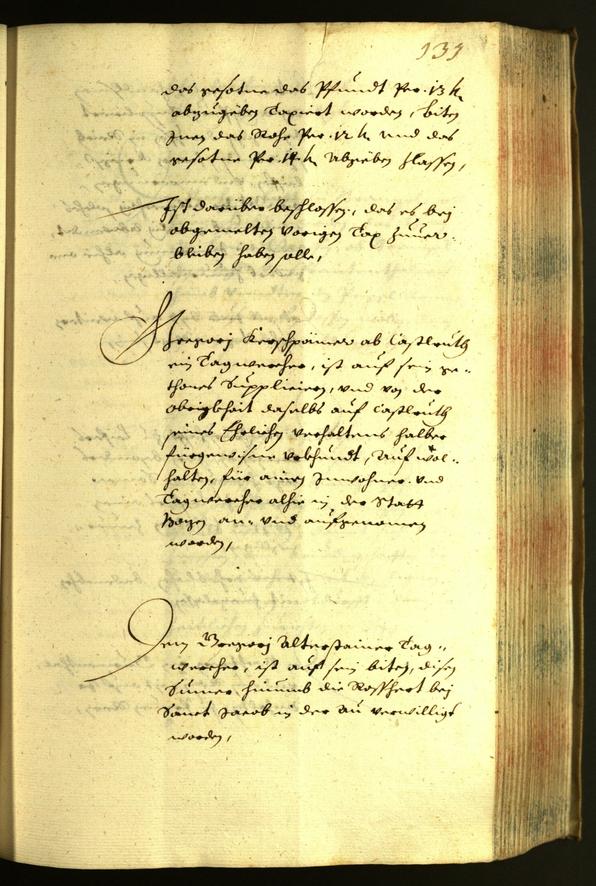 139
das gesotne das Pfundt Per. 13 k
abzugeben Taxiert worden, biten
Inen das Rohe Per. 12 k und das
gesotne Per. 14 k Abgeben zlassen,
Ist darüber beschlossen, das es bej
abgemelten vorigen Tax zuuer-
bleiben haben solle,
Gregorj Kerschpämer ab Castlruth
ein Tagwercher, ist auf sein ge-
thones Supplicieren, vnd von der
Obrigkheit daselbs auf Castlruth
seines Ehrlichen verhaltens halber
fürgewisne vrkhundt, Auf wol-
halten, für ainen Inwohner vnd
Tagwercher alhie in der Statt
Bozen an- vnd aufgenomen
worden,
Dem Gregorj Alterstainer Tag-
wercher, ist auf sein biten, disen
Sumer hinumb die Rosshert bej
Sanct Jacob in der Au verwilligt
worden,